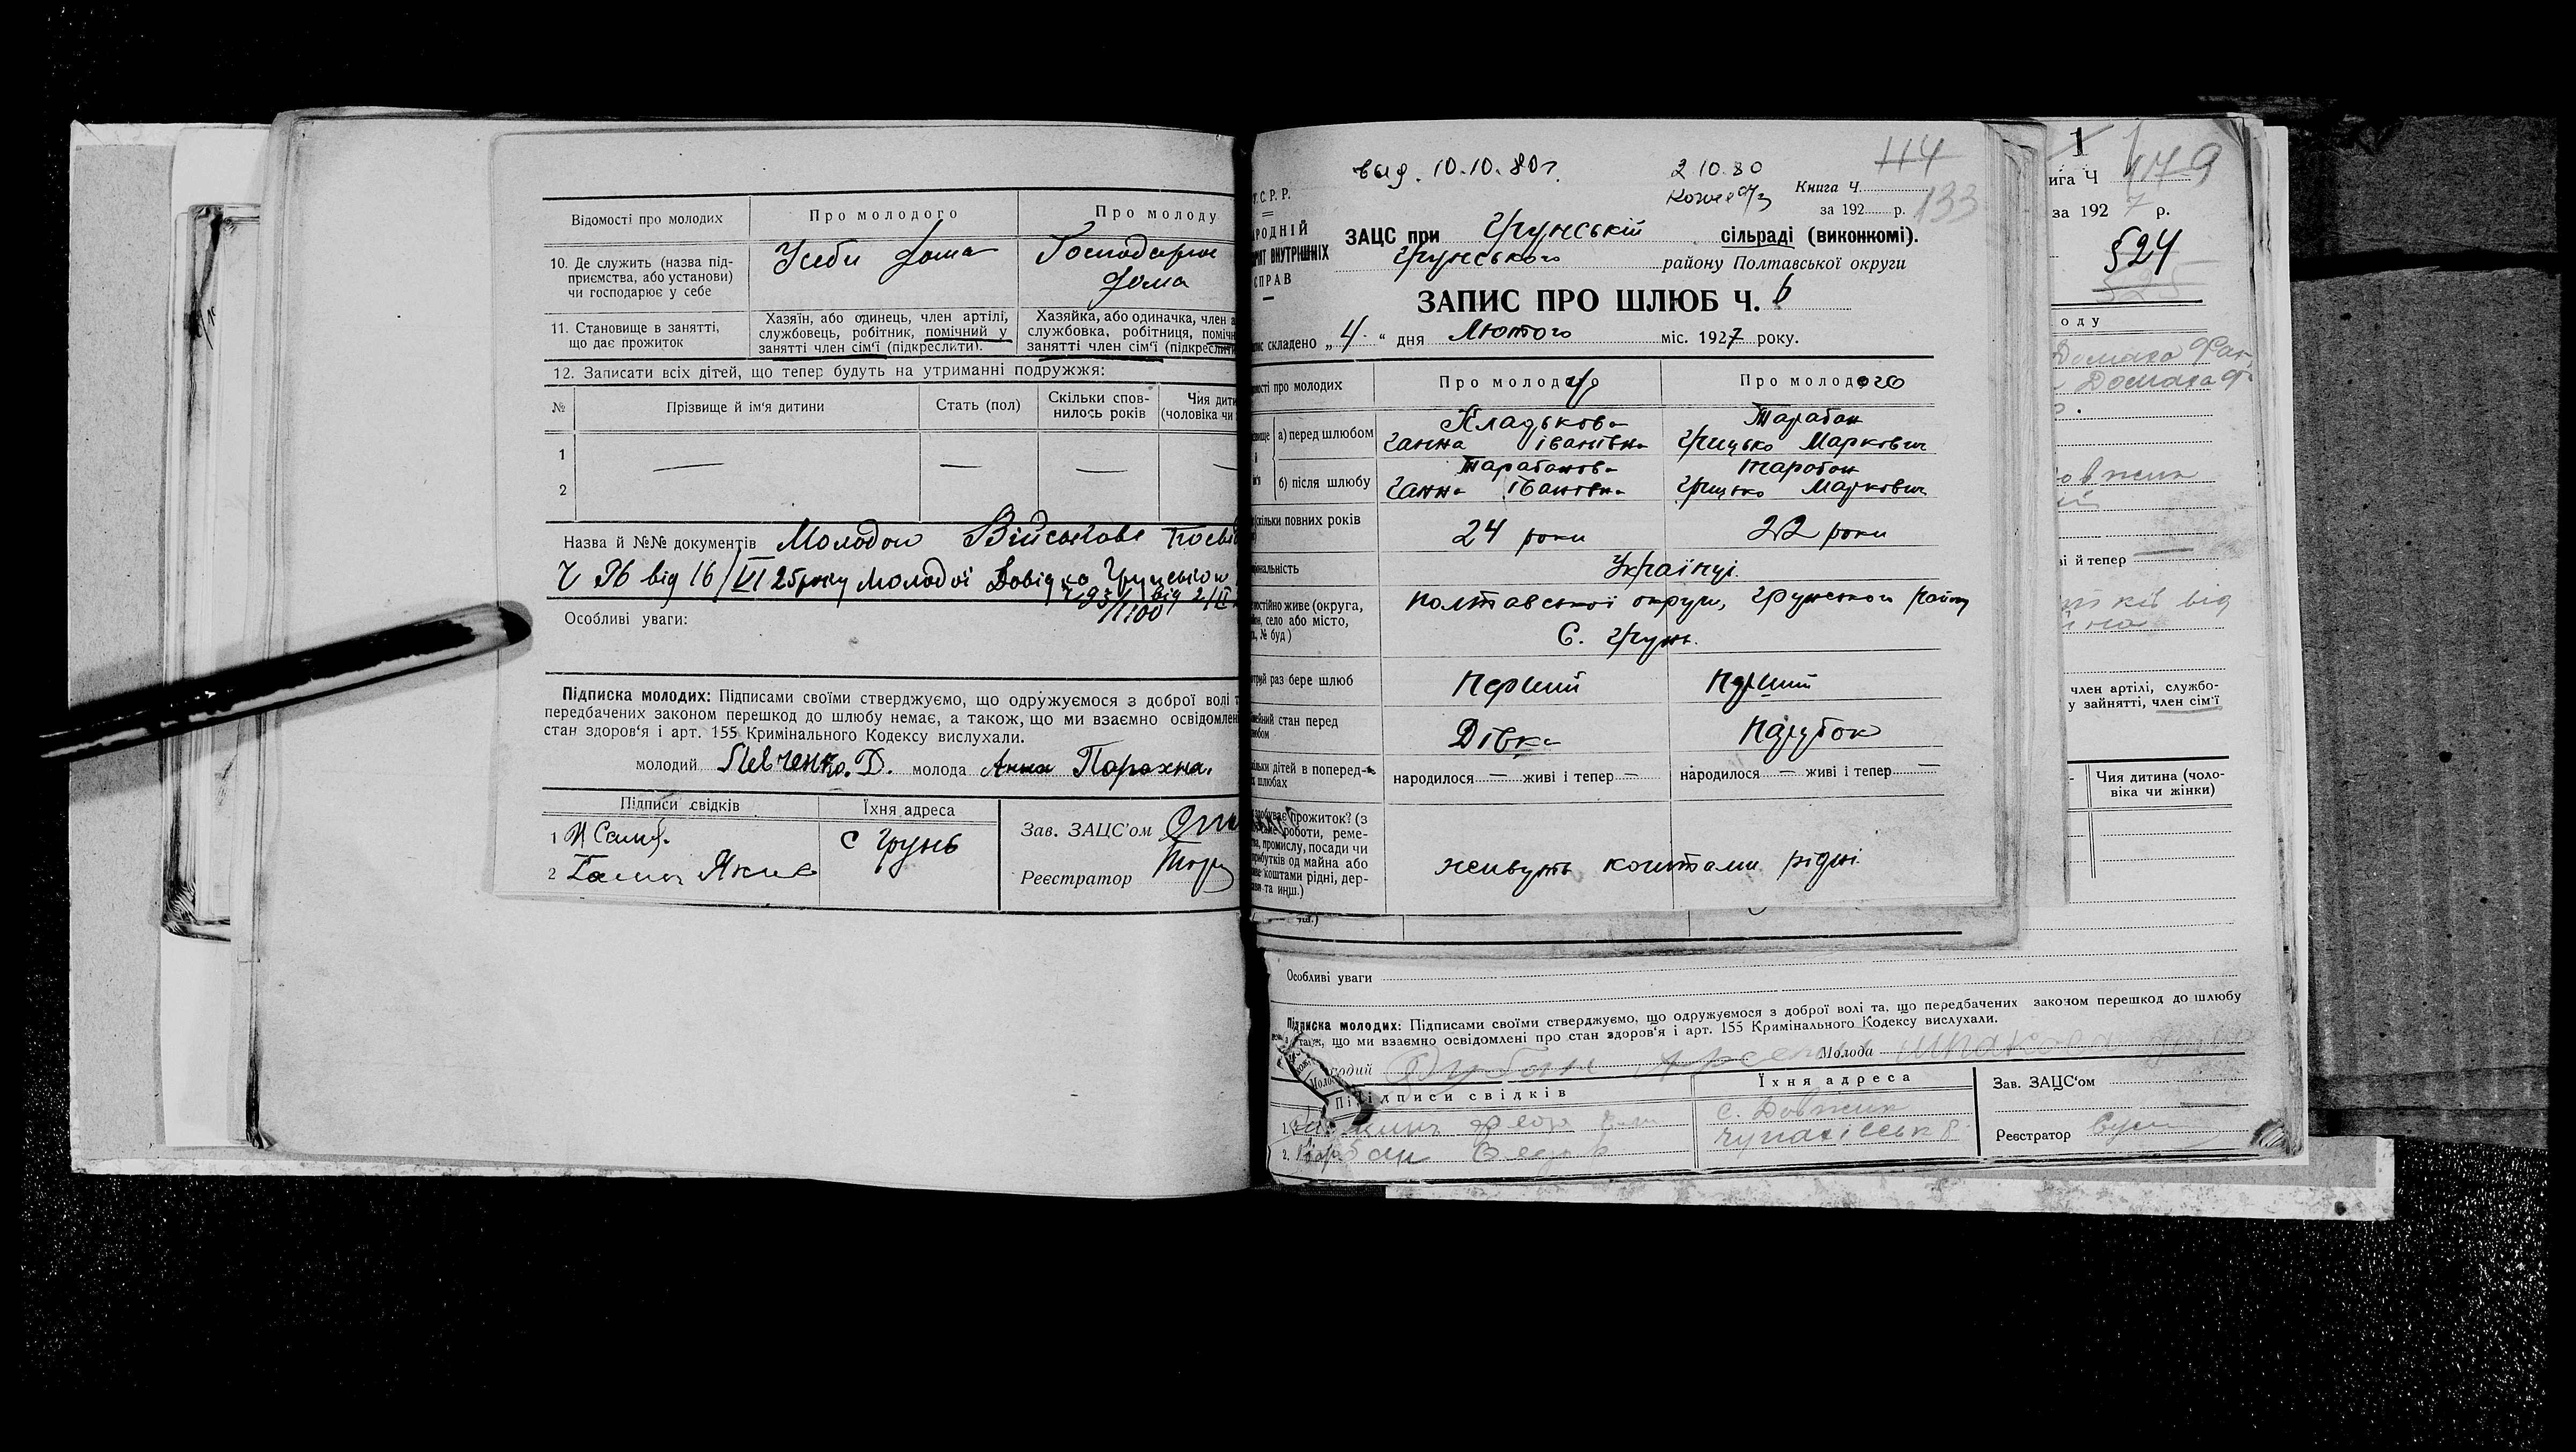 Відомості про молодих
Про молодого
Про молоду
10. Де служить (назва під-
приємства, або установи)
чи господарює у себе
Усеби дома
Господарює
дома
11. Становище в занятті,
що дає прожиток
Хазяїн, або одинець, член артілі,
службовець, робітник, помічний у
занятті член сім'ї (підкреслити).
Хазяйка, або одиначка, член а
службовка, робітниця, поміч
занятті член сім'ї (підкреслити
12. Записати всіх дітей, що тепер будуть на утриманні подружжя:
№
Прізвище й ім'я дитини
Стать (пол)
Скільки спов-
нилось років
Чия дити
(чоловіка чи
1
2
Назва й №№ документів Молодою Військове посвід
Ч 96 від 16/VI 25 року Молодої Довідка Грунською
Ч 93/1100 від 2/II
Особливі уваги:
Підписка молодих: Підписами своїми стверджуємо, що одружуємося з доброї волі т
передбачених законом перешкод до шлюбу немає, а також, що ми взаємно освідомлен
стан здоров'я і арт. 155 Кримінального Кодексу вислухали.
молодий Левченко. Д. молода Анна Парахна.
Підписи свідків
Їхня адреса
1
2
с Грунь
Зав. ЗАЦС'ом
Реєстратор
выд. 10.10.80 г.
2 10.80
114
133
Т. С. Р. Р.
РОДНІЙ
ВНУТРІШНІХ
СПРАВ
Книга Ч.
за 192 р.
ЗАЦС при Грунській сільраді (виконкомі).
Грунського району Полтавської округи
ЗАПИС ПРО ШЛЮБ Ч. 6
складено „4“ дня Лютого міс. 1927 року.
мості про молодих
Про молоду
Про молодого
а) перед шлюбом
Кладькова
Ганна Іванівна
Тарабан
Грицько Маркович
б) після шлюбу
Тарабанова
Ганна Іванівна
Тарабан
Грицько Маркович
кільки повних років
24 роки
22 роки
ональність
Українці
постійно живе (округа,
он, село або місто,
№ буд)
Полтавської округи, Грунського району
С. Грунь.
раз бере шлюб
Перший
Перший
стан перед
Дівка
Парубок
дітей в поперед-
шлюбах
народилося — живі і тепер —
народилося — живі і тепер —
здобуває прожиток? (з
роботи, реме-
промислу, посади чи
прибутків од майна або
коштами рідні, дер-
та инш.)
живуть коштами рідні
1
179
ига Ч
за 1927 р.
§24
оду
ві й тепер
член артілі, службо-
у зайнятті, член сім'ї
Чия дитина (чоло-
віка чи жінки)
Особливі уваги
Підписка молодих: Підписами своїми стверджуємо, що одружуємося з доброї волі та, що передбачених законом перешкод до шлюбу
також, що ми взаємно освідомлені про стан здоров'я і арт. 155 Кримінального Кодексу вислухали.
Молода
Підписи свідків
Їхня адреса
1.
2.
с. Довжик
Зав. ЗАЦС'ом
Реєстратор